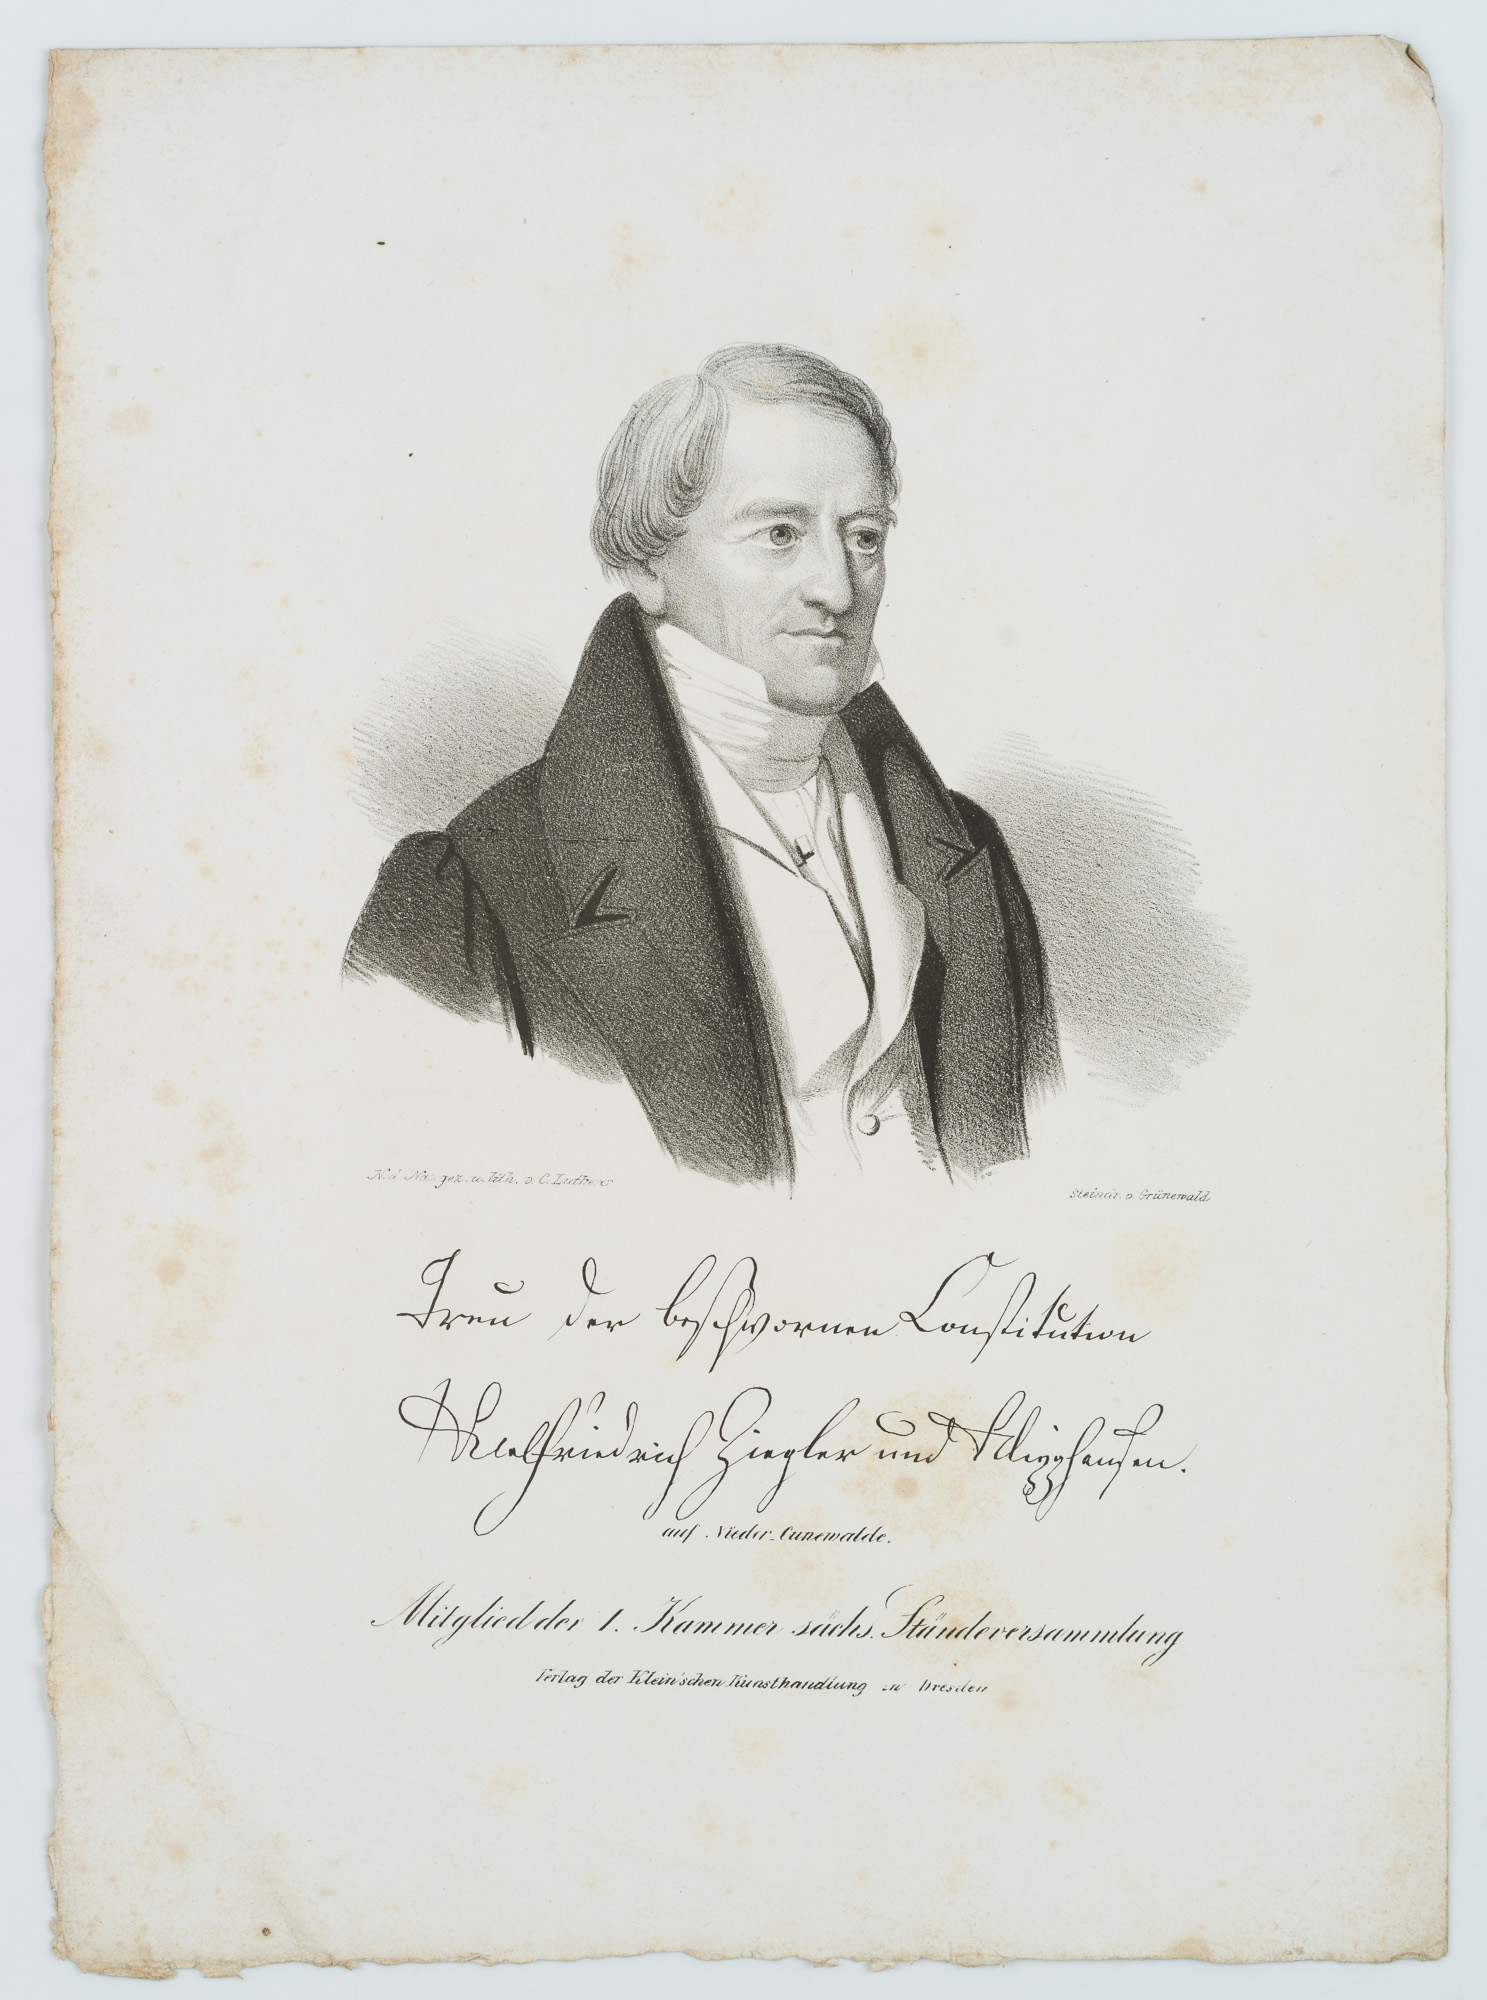 N. d. Nat. gez. u. lith. v. C. Lutherer
Steindr. v. Grünewald
Treu der beschwornen Constitution
Welfriedrich Ziegler und Klipphausen.
auf Nieder-Cunewalde.
Mitglied der 1. Kammer sächs. Ständeversammlung
Verlag der Klein'schen Kunsthandlung in Dresden